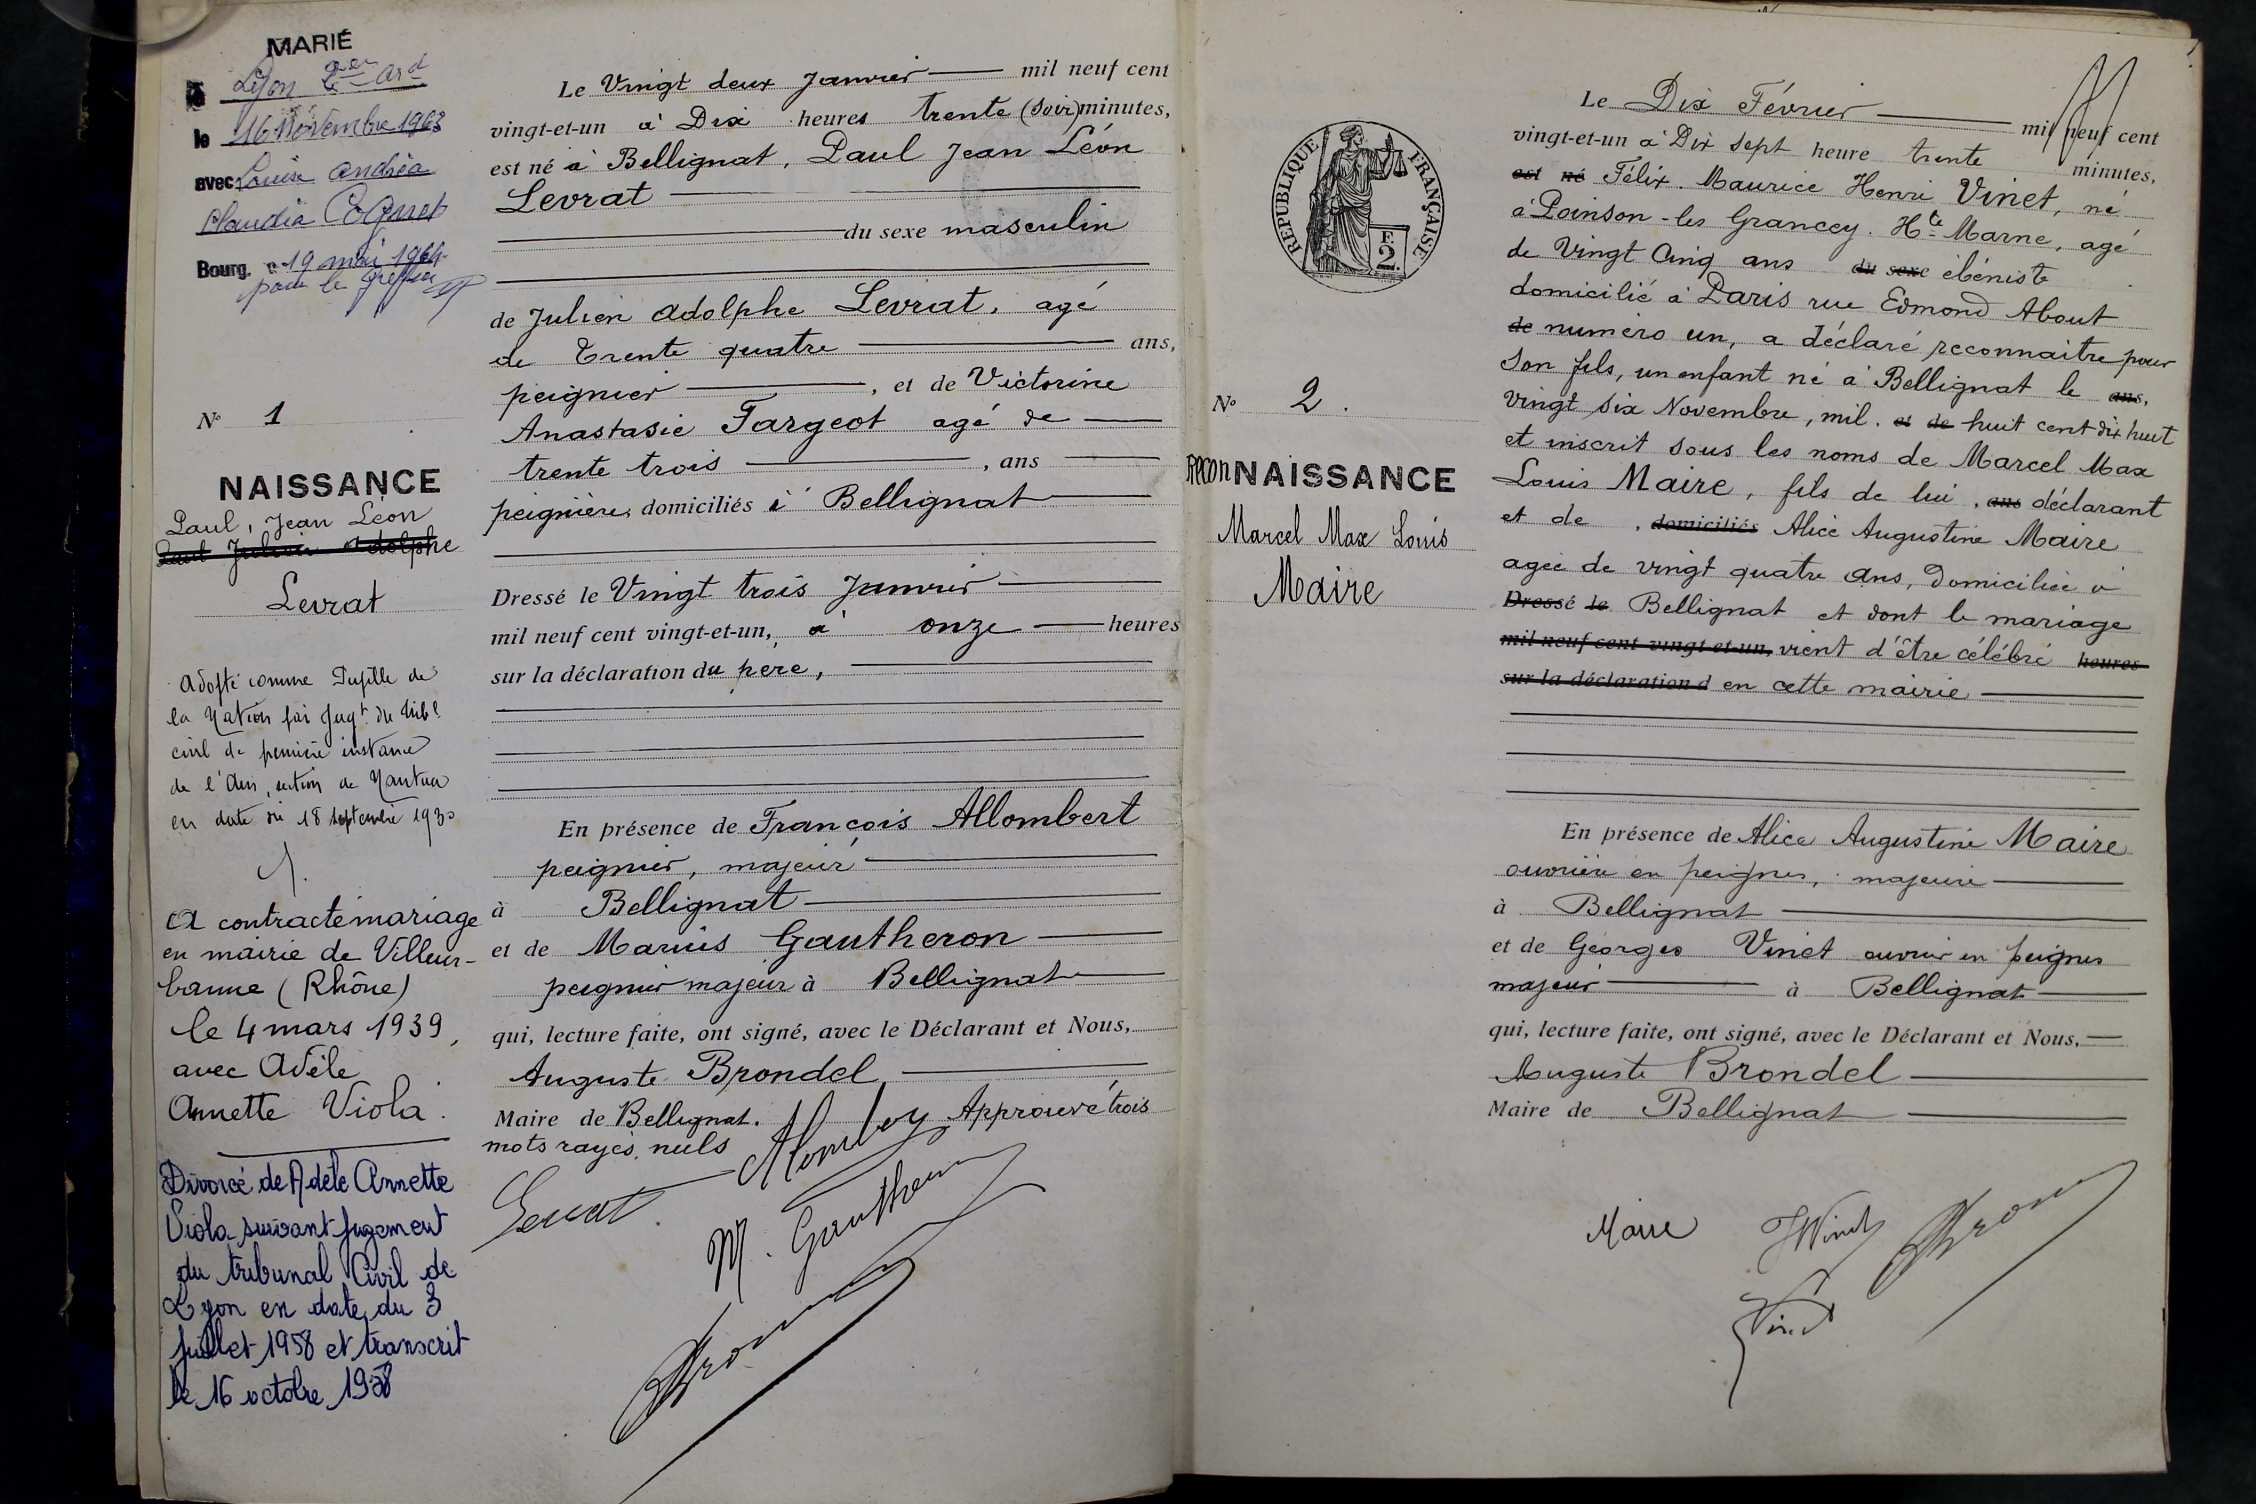 MARIÉ
à Lyon 2em Ard
le 16 Novembre 1963
avec Louise Andréa
Claudia
Bourg, 19 mai 1964
pour le Greffier
N° 1
NAISSANCE
Paul, Jean Léon
Paul Julien Adolphe
Levrat
Adopté comme Pupille de
la Nation par Jugt du Tribl
civil de première instance
de l'Ain, section de Nantua
en date du 18 septembre 1930
A contracté mariage
en mairie de Villeur-
banne (Rhône)
le 4 mars 1939,
avec Adèle
Annette Viola.
Divorcé de Adèle Annette
Viola suivant jugement
du tribunal Civil de
Lyon en date du 3
juillet 1958 et transcrit
le 16 octobre 1958
Le Vingt deux Janvier mil neuf cent
vingt-et-un à Dix heures trente (soir) minutes,
est né à Bellignat, Paul Jean Léon
Levrat
du sexe masculin
de Julien Adolphe Levrat, agé
de Trente quatre ans,
peignier, et de Victorine
Anastasie Fargeot agé de
trente trois, ans
peignière, domiciliés à Bellignat
Dressé le Vingt trois Janvier
mil neuf cent vingt-et-un, à onze heures
sur la déclaration du père,
En présence de François Allombert
peignier, majeur
à Bellignat
et de Marius Gautheron
peignier majeur à Bellignat
qui, lecture faite, ont signé, avec le Déclarant et Nous,
Auguste Brondel
Maire de Bellignat. Approuvé trois
mots rayés nuls
Levrat
M. Gautheron
RÉPUBLIQUE FRANÇAISE
F.
2
N° 2.
ReconNAISSANCE
Marcel Max Louis
Maire
Le Dix Février mil neuf cent
vingt-et-un à Dix sept heure trente minutes,
est né Félix. Maurice Henri Vinet, né
à Poinson-les Grancey. Hte Marne, agé
de Vingt Cinq ans du sexe ébéniste
domicilié à Paris rue Edmond About
de numéro un, a déclaré reconnaitre pour
son fils, un enfant né à Bellignat le ans,
vingt six Novembre, mil. et de huit cent dix huit
et inscrit sous les noms de Marcel Max
Louis Maire, fils de lui, ans déclarant
et de, domiciliés Alice Augustine Maire
agée de vingt quatre ans, Domiciliée à
Dressé le Bellignat et dont le mariage
mil neuf cent vingt-et-un, vient d'être célébré heures
sur la déclaration d en cette mairie
En présence de Alice Augustine Maire
ouvrière en peignes, majeure
à Bellignat
et de Georges Vinet ouvrier en peignes
majeur à Bellignat
qui, lecture faite, ont signé, avec le Déclarant et Nous,
Auguste Brondel
Maire de Bellignat
Maire